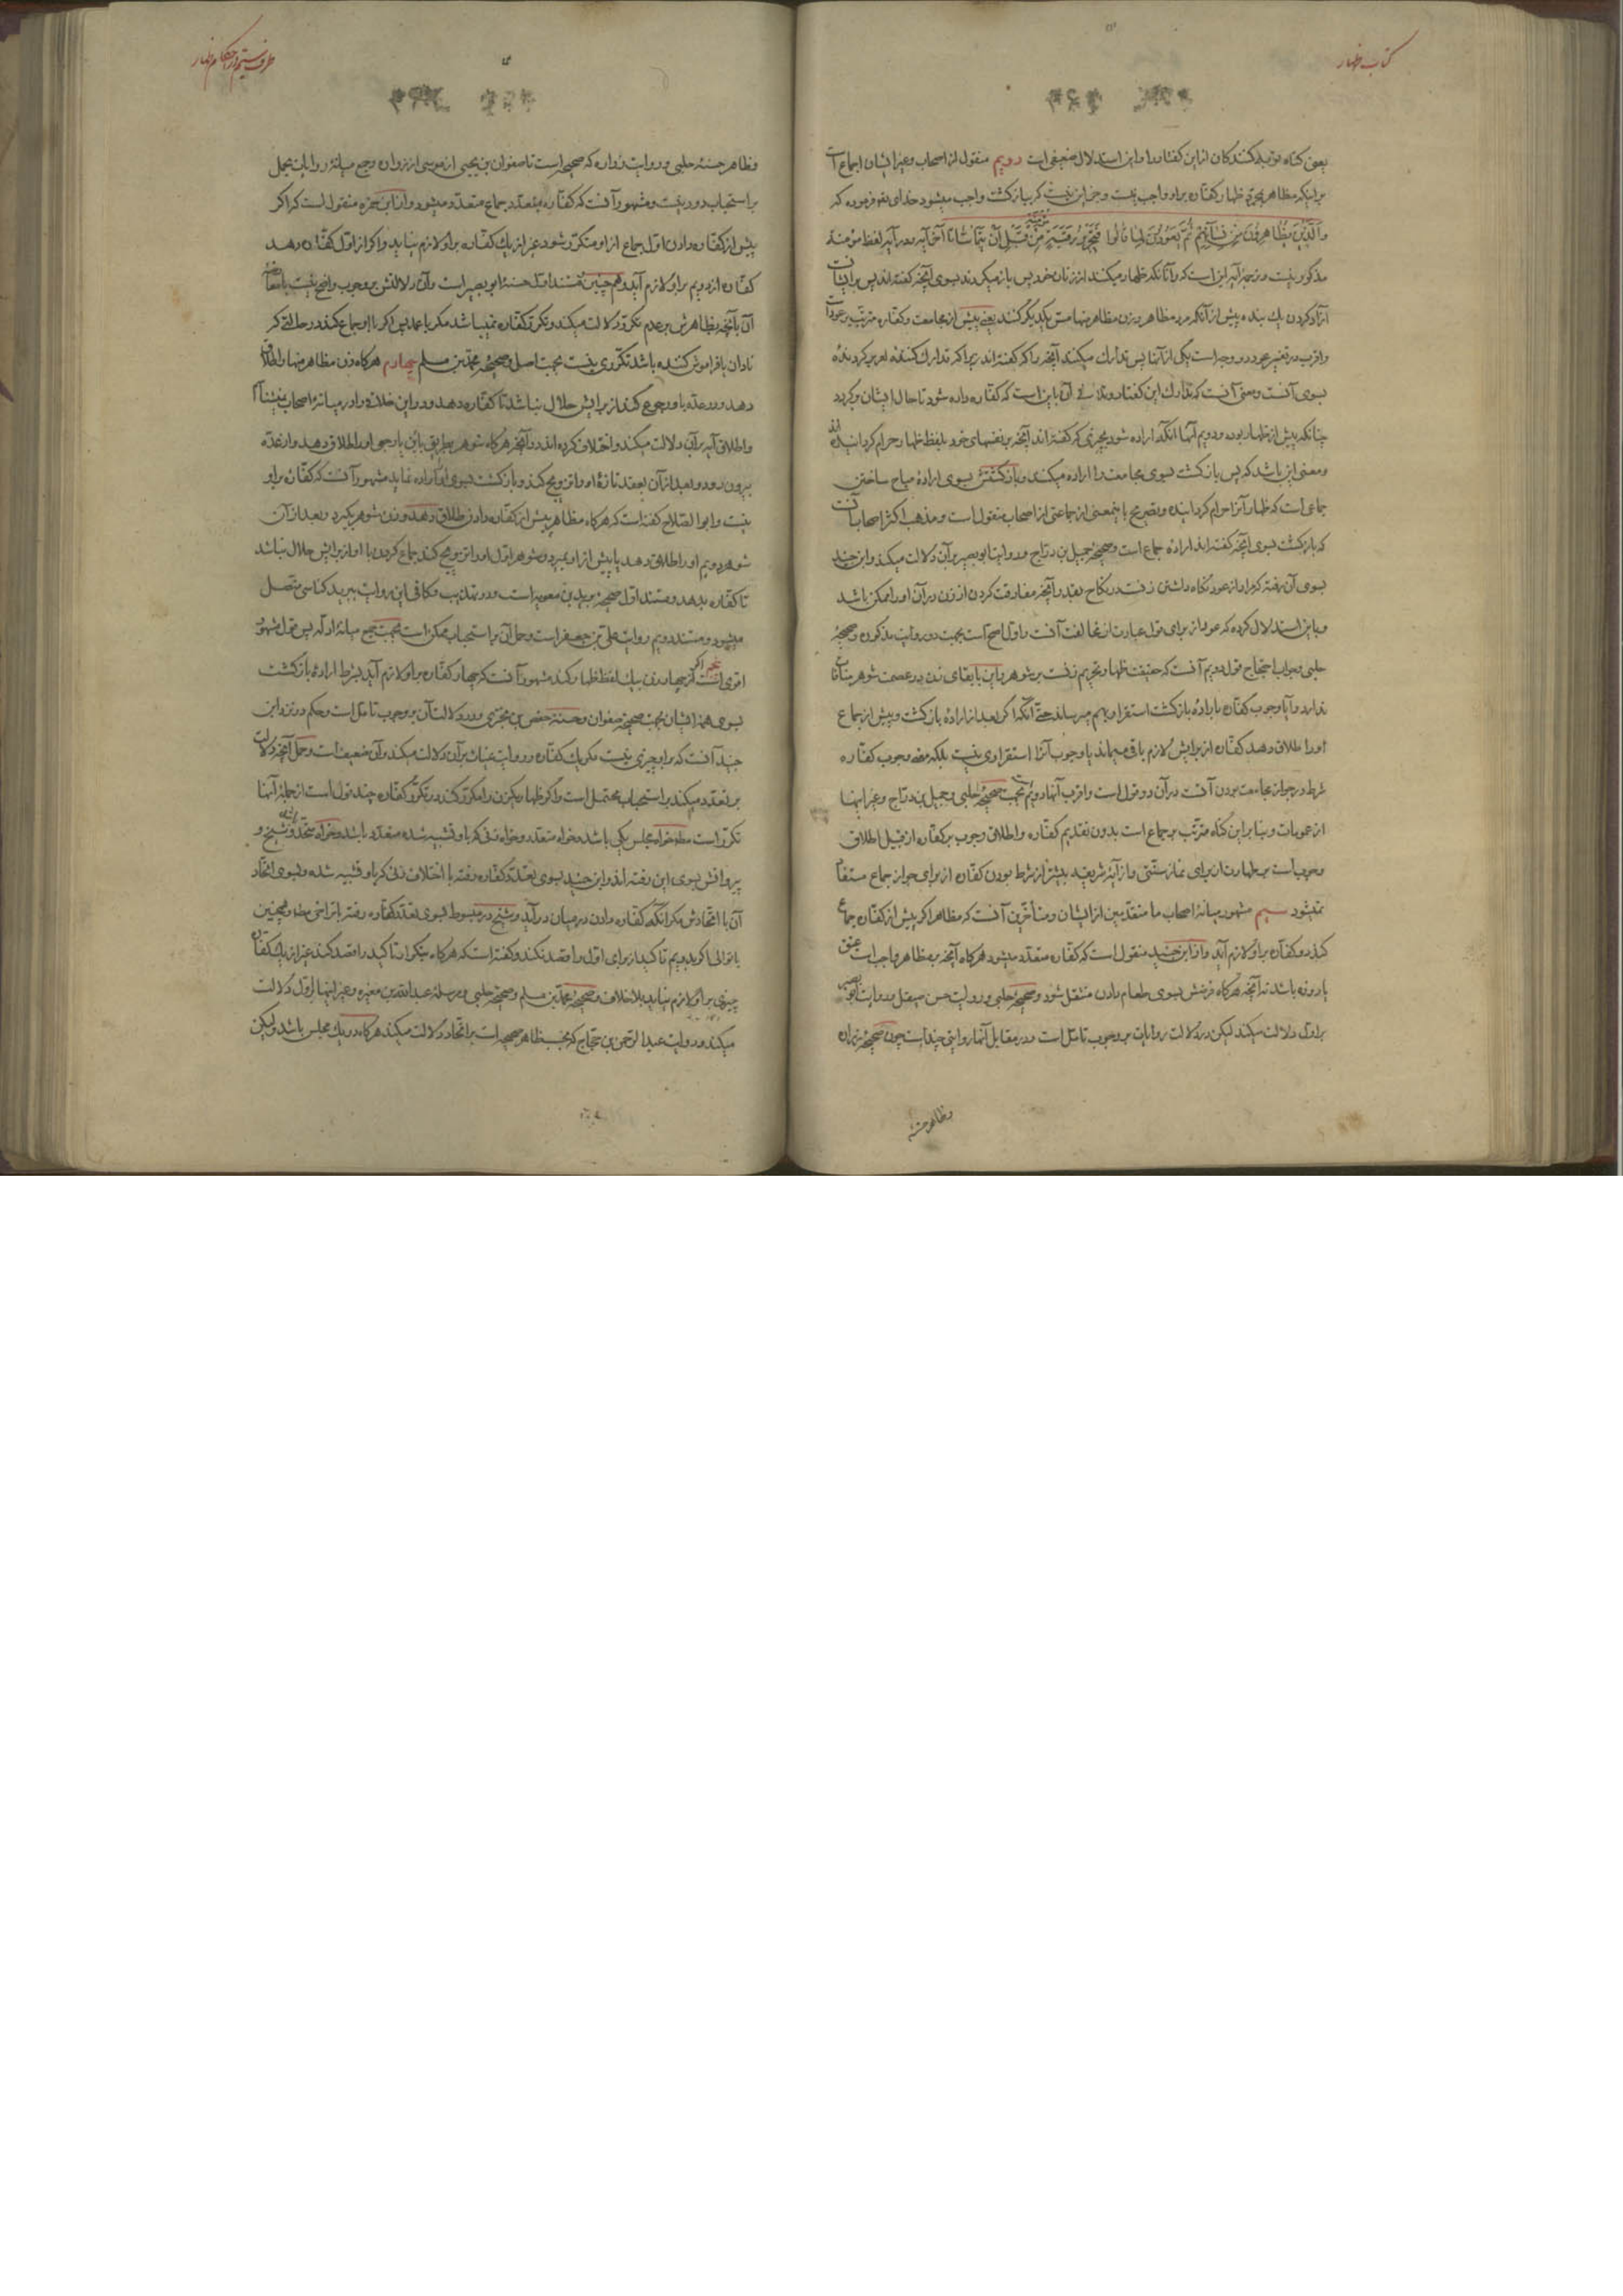 کتاب ظهار
یعنی کناه توبه کنندکان از این کفتار و این استدلال ضعیفی است دویم منقول از اصحاب و غیر ایشان اجماع است
بر اینکه مظاهر بمجرد ظهار کفاره بر او واجب نیست و جز این نیست که ببازکشت واجب میشود خدای تعالی فرموده که
والذین یظاهرون من نسائهم ثم یعودون لما قالوا فتحریر رقبة من قبل ان یتماسا تا آخر آیه و در آیه لفظ مؤمنة
مذکور نیست و ترجمه آیه این است که و آنانکه ظهار میکنند از زنان خود پس باز میکردند بسوی آنچه کفته اند پس بر ایشان است
آزاد کردن یک بنده پیش از آنکه مرد مظاهر و زن مظاهر منها مس یکدیکر کنند یعنی پیش از مجامعت و کفاره مترتب بر عود است
و اقرب در تفسیر عود دو وجه است یکی از آنها پس تدارک میکنند آنچه را که کفته اند زیرا که تدارک کننده امر برکردنده
بسوی آنست و معنی آنست که تدارک این کفتار و تلافی آن باین است که کفاره داده شود تا حال ایشان برکردد
چنانکه پیش از ظهار بوده و دویم آنها آنکه اراده شود بچیزی که کفته اند آنچه بر نفسهای خود بلفظ ظهار حرام کردانیده اند
و معنی این باشد که پس بازکشت بسوی مجامعت را اراده میکنند و بازکشتن بسوی اراده مباح ساختن
جماعی است که ظهار آنرا حرام کردانیده و تصریح باینمعنی از جماعتی از اصحاب منقول است و مذهب اکثر اصحاب آنست
که بازکشت بسوی آنچه کفته اند اراده جماع است و صحیحه جمیل بن دراج و روایت ابو بصیر بر آن دلالت میکند و ابن جنید
بسوی آن رفته که مراد از عود نکاه داشتن زنست در نکاح بقدر آنچه مفارقت کردن از زن در آن او را ممکن باشد
و باین استدلال کرده که عود از برای قول عبارت از مخالفت آنست و اول اصح است بجهت دو روایت مذکوره و صحیحه
حلبی و جواب احتجاج قول دویم آنست که حقیقت ظهار تحریم زنست بر شوهر و این با بقای زن در عصمت شوهر منافات
ندارد و آیا وجوب کفاره باراده بازکشت استقرار بهم میرساند حتی آنکه اکر بعد از اراده بازکشت و پیش از جماع
او را طلاق دهد کفاره از برایش لازم باقی میماند یا وجوب آنرا استقراری نیست بلکه معنی وجوب کفاره
شرط در جواز مجامعت بودن آنست در آن دو قول است و اقرب آنها دویم بجهت صحیحه حلبی و جمیل بن دراج و غیر اینها
از عمومات و بنا بر این کناه مترتب بر جماع است بدون تقدیم کفاره و اطلاق وجوب بر کفاره از قبیل اطلاق
وجوب است بر طهارت از برای نماز سنتی و از آیه شریفه بیشتر از شرط بودن کفاره از برای جواز جماع مستفاد
نمیشود سیم مشهور میانه اصحاب ما متقدمین از ایشان و متأخرین آنست که مظاهر اکر پیش از کفاره جماع
کند دو کفاره بر او لازم آید و از ابن جنید منقول است که کفاره متعدد میشود هرکاه آنچه بر مظاهر واجب است عتق
یا روزه باشد نه آنچه هرکاه فرضش بسوی طعام دادن منتقل شود و صحیحه حلبی و روایت حسن صیقل و روایت ابو بصیر
بر اول دلالت میکند لیکن در دلالت روایات بر وجوب تامل است و در مقابل آنها روایتی چند است چون صحیحه زراره
و ظاهر حسنه
طرف بیستم در احکام ظهار
و ظاهر حسنه حلبی و روایت زراره که صحیح است تا صفوان بن یحیی از موسی از زراره و جمع میانه روایات بحمل
بر استحباب دور نیست و مشهور آنست که کفاره بتعدد جماع متعدد میشود و از ابن حمزه منقول است که اکر
پیش از کفاره دادن اول جماع از او متکرر شود غیر از یک کفاره بر او لازم نیاید و اکر از اول کفاره دهد
کفاره از دویم بر او لازم آید و همچنین مستند اول حسنه ابو بصیر است و آن دلالتش بر وجوب واضح نیست با معارضه
آن بآنچه بظاهرش بر عدم تکرر دلالت میکند و تکرر کفاره نمیباشد مکر با عمد پس اکر با او جماع کند در حالتی که
نادان یا فراموش کننده باشد تکرری نیست بجهت اصل و صحیحه محمد بن مسلم چهارم هرکاه زن مظاهر منها را طلاق
دهد و در عده باو رجوع کند از برایش حلال نباشد تا کفاره دهد و در این خلاف را در میانه اصحاب نیستم
و اطلاق آیه بر آن دلالت میکند و اختلاف کرده اند در آنچه هرکاه شوهر بطریق باین یا رجعی او را طلاق دهد و از عده
بیرون رود و بعد از آن بعقد تازه او را تزویج کند و بازکشت بسوی او اراده نماید مشهور آنست که کفاره بر او
نیست و ابو الصلاح کفته است که هرکاه مظاهر پیش از کفاره دادن طلاق دهد و زن شوهر بکیرد و بعد از آن
شوهر دویم او را طلاق دهد یا پیش از او بمیرد و شوهر اول او را تزویج کند جماع کردن با او از برایش حلال نباشد
تا کفاره بدهد و مستند اول صحیحه برید بن معویه است و در تهذیب و کافی این روایت ببرید کناسی متصل
میشود و مستند دویم روایت علی بن جعفر است و حمل آن بر استحباب ممکن است بجهت جمع میانه ادله پس قول مشهور
اقوی است پنجم اکر چهار زن بیک لفظ ظهار کند مشهور آنست که چهار کفاره بر او لازم آید بشرط اراده بازکشت
بسوی همه ایشان بجهت صحیحه صفوان و حسنه حفص بن بختری و در دلالت آن بر وجوب تامل است و حکم در نزد ابن
جنید آنست که بر او چیزی نیست مکر یک کفاره و روایت غیاث بر آن دلالت میکند و آن ضعیف است و حمل آنچه دلالت
بر تعدد میکند بر استحباب محتمل است و اکر ظهار یکزن را مکرر کند در تکرر کفاره چند قول است از جمله آنها
تکرر است مطلقا خواه مجلس یکی باشد و خواه متعدد و خواه زنی که باو تشبیه شده متعدد باشد و خواه متحد و شیخ و
پیروانش بسوی این رفته اند و ابن جنید بسوی تعدد کفاره رفته با اختلاف زنی که باو تشبیه شده و بسوی اتحاد
آن با اتحادش مکر آنکه کفاره دادن در میان در آید و شیخ در مبسوط بسوی تعدد کفاره رفته با تراخی مطلقا و همچنین
با توالی اکر بدویم تاکید از برای اول را قصد نکند و کفته است که هرکاه بتکرار تاکید را قصد کند غیر از یک کفاره
چیزی بر او لازم نیاید بلا خلاف و صحیحه محمد بن مسلم و صحیحه حلبی و مرسله عبدالله بن مغیره و غیر اینها بر اول دلالت
میکند و روایت عبد الرحمن بن حجاج که بحسب ظاهر صحیح است بر اتحاد دلالت میکند هرکاه در یک مجلس باشد و لیکن